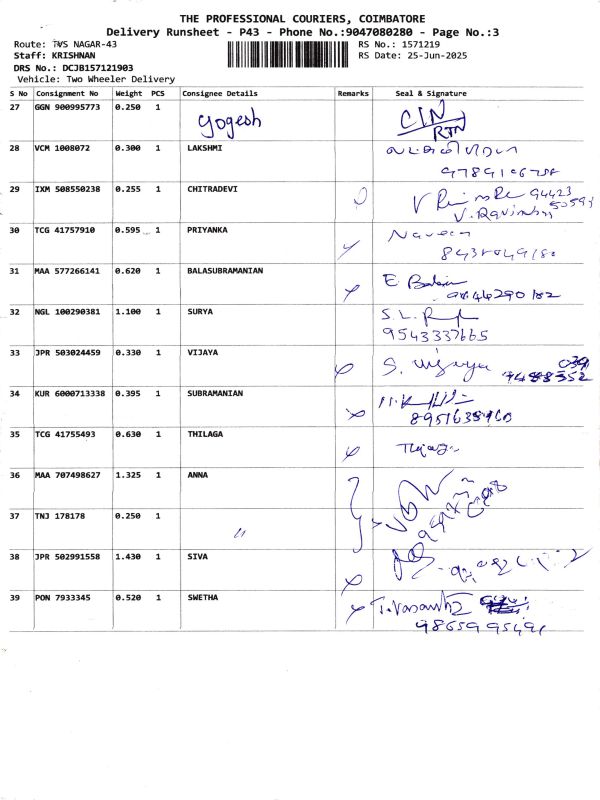 THE PROFESSIONAL COURIERS, COIMBATORE
Delivery Runsheet - P43 - Phone No.:9047080280 - Page No.:3
Route: TVS NAGAR-43 RS No.: 1571219
Staff: KRISHNAN RS Date: 25-Jun-2025
DRS No.: DCJB157121903
Vehicle: Two Wheeler Delivery
S No Consignment No Weight PCS Consignee Details Remarks Seal & Signature
27 GGN 900995773 0.250 1 yogesh CIN
RTN
28 VCM 1008072 0.300 1 LAKSHMI
29 IXM 508550238 0.255 1 CHITRADEVI 94423
V. Ravindran 50593
30 TCG 41757910 0.595 1 PRIYANKA Naveen
31 MAA 577266141 0.620 1 BALASUBRAMANIAN E
32 NGL 100290381 1.100 1 SURYA S.L.
9543337665
33 JPR 503024459 0.330 1 VIJAYA S. Vijaya
34 KUR 6000713338 0.395 1 SUBRAMANIAN
35 TCG 41755493 0.630 1 THILAGA
36 MAA 707498627 1.325 1 ANNA
37 TNJ 178178 0.250 1 "
38 JPR 502991558 1.430 1 SIVA
39 PON 7933345 0.520 1 SWETHA T.Vasantha
9865995491